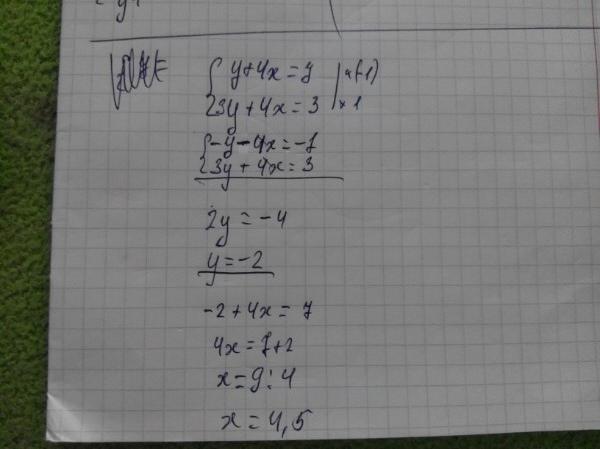 { y+4x=7 | ×(-1)
{ 3y+4x=3 | ×1
{ -y-4x=-7
{ 3y+4x=3
2y=-4
y=-2
-2+4x=7
4x=7+2
x=9:4
x=4,5